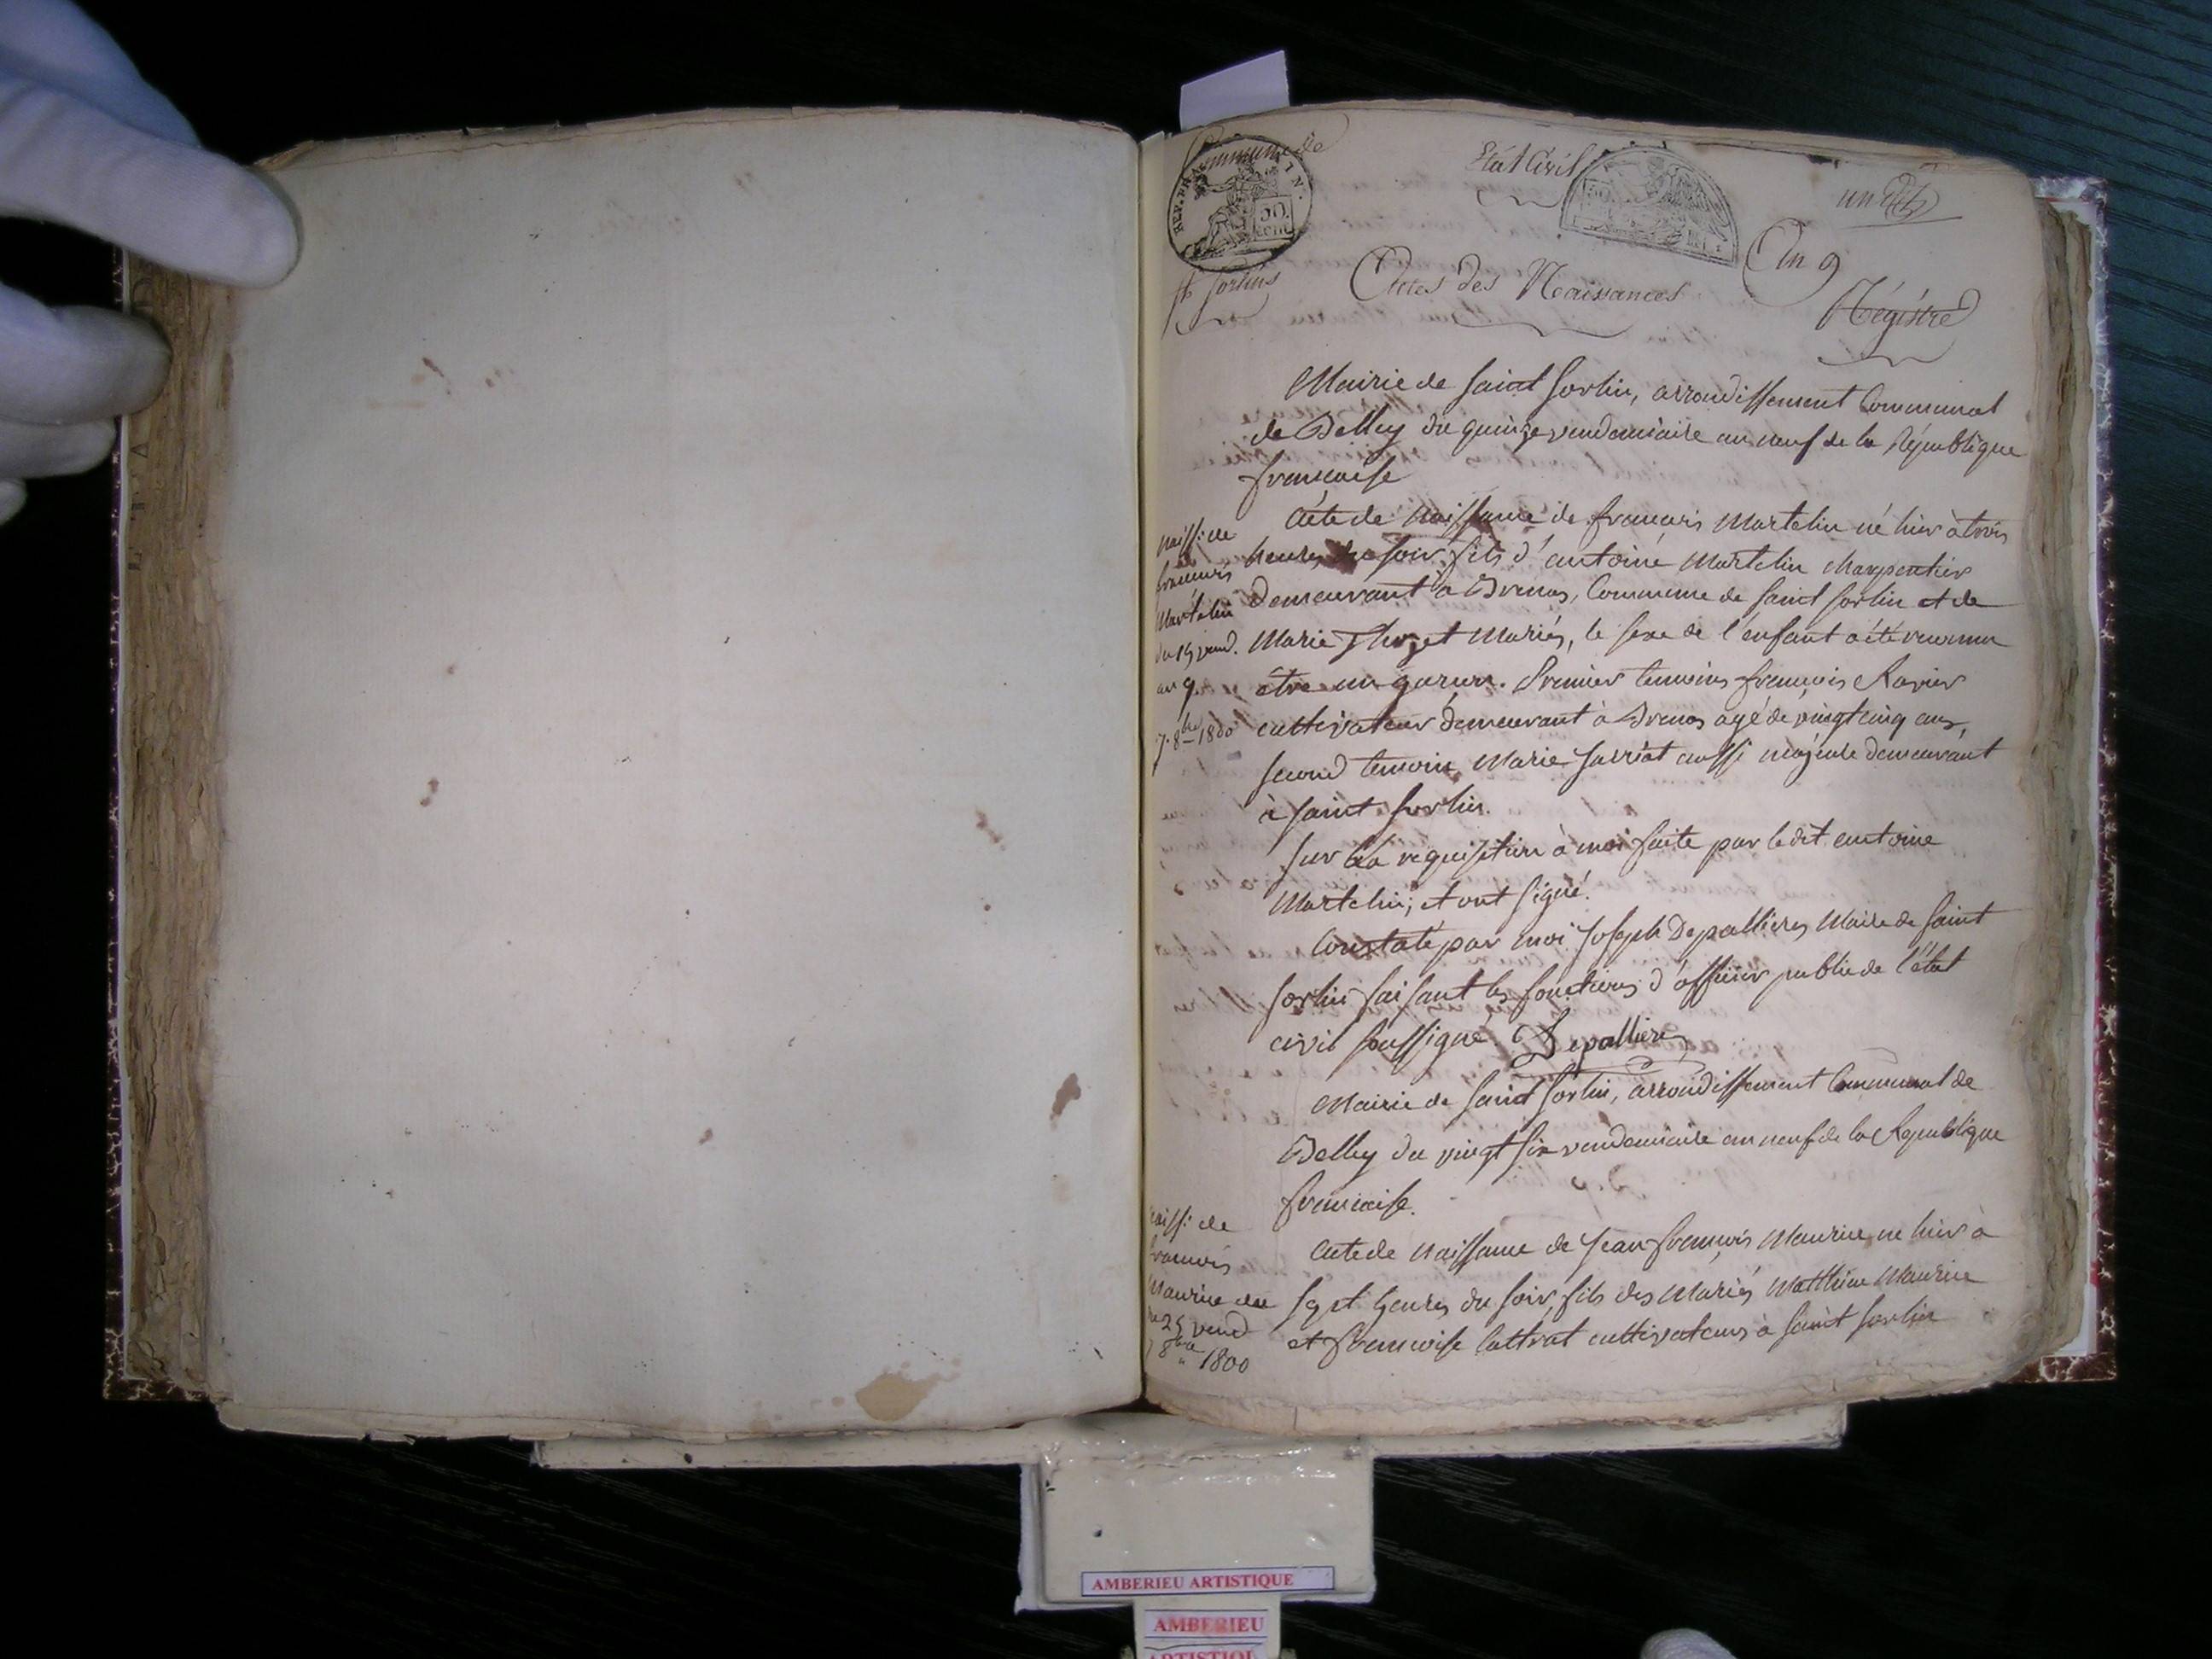 Commune de
St Sorlin
REP. FRA
50.
cent
Etat Civil
un
Actes des Naissances
An 9
Régistre
Mairie de Saint Sorlin, arrondissement Communal
de Belley du quinze vendemiaire an neuf de la République
francaise
naiss: de
francois
Martelin
du 15 vend.
an 9.
7. 8bre 1800
Acte de Naissance de francois Martelin né hier à trois
heures du soir, fils d'antoine Martelin Charpentier
demeurant à Brenos, Commune de Saint Sorlin et de
Marie mariés, le sexe de l'enfant a été reconnu
être un garcon. Premier temoins francois Ravier
cultivateur demeurant à Brenos agé de vingt cinq ans,
second temoin Marie Sarriat aussi majeure demeurant
à Saint Sorlin.
Sur la requisition à moi faite par ledit antoine
Martelin; et ont signé.
Constaté par moi Joseph Depallieres Maire de Saint
Sorlin faisant les fonctions d'officier public de l'état
civil soussigné. Depallieres
Mairie de Saint Sorlin, arrondissement Communal de
Belley du vingt six vendemiaire an neuf de la Republique
francaise.
naiss: de
francois
Maurice du
25 vend
8bre 1800
Acte de Naissance de Jean francois Maurice né hier à
sept heures du soir, fils des Mariés Matthieu Maurice
et francoise Lattrat cultivateurs à Saint Sorlin
AMBERIEU ARTISTIQUE
AMBERIEU
ARTISTIQU